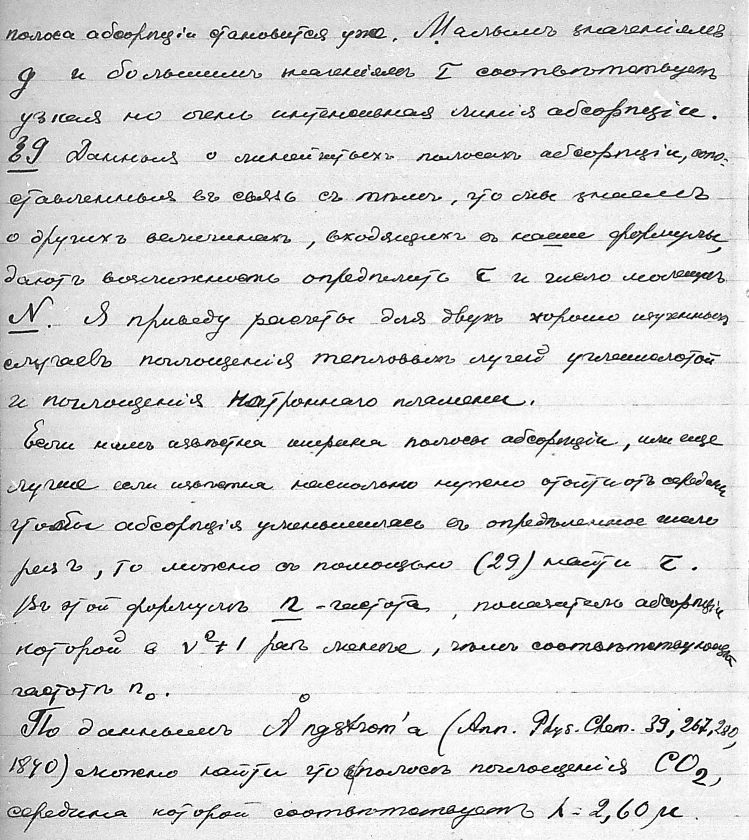 полоса абсорпціи становится уже. Малымъ значеніямъ
g и большимъ значеніямъ τ соотвѣтствуетъ
узкая но очень интенсивная линія абсорпціи.
39 Данныя о линейчатыхъ полосахъ абсорпціи, сопо-
ставленныя въ связь съ тѣмъ, что мы знаемъ
о другихъ величинахъ, входящихъ въ наши формулы,
даютъ возможность опредѣлить τ и число молекулъ
N. Я приведу расчеты для двухъ хорошо изученныхъ
случаевъ поглощенія тепловыхъ лучей углекислотой
и поглощенія натроннаго пламени.
Если намъ извѣстна ширина полосы абсорпціи, или еще
лучше если извѣстна насколько нужно отойти отъ середины
чтобы абсорпція уменьшилась въ опредѣленное число
разъ, то можно съ помощью (29) найти τ.
Въ этой формулѣ n - частота, показатель абсорпціи
которой в ν²+1 разъ менѣе, чѣмъ соотвѣтствующая
частотѣ n₀.
По даннымъ Ångström'a (Ann. Phys. Chem. 39, 267, 280,
1890) можно найти что полоса поглощенія CO₂,
середина которой соотвѣтствуетъ λ = 2,60 μ.